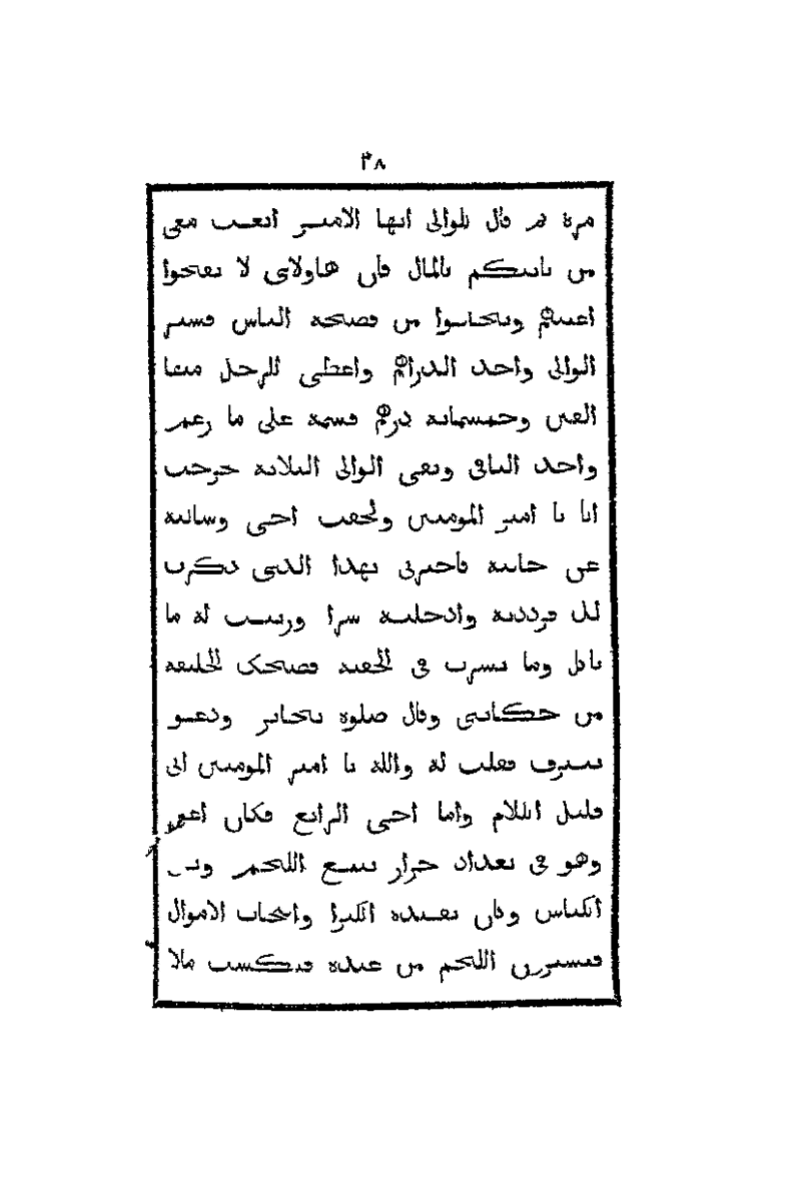 ٣٨
مرة ثم قال للوالى ايها الامير ابعث معى
من ياتيكم بالمال فان هاولاى لا يفتحوا
اعينهم ويخافوا من فضيحة الناس فسير
الوالى واخذ الدراهم واعطى للرجل منها
الفين وخمسماية درهم قسمة على ما زعم
واخذ الباقى ونفى الوالى الثلاثة خرجت
انا يا امير المومنين ولحقت اخى وسالته
عن حاله فاخبرنى بهذا الذى ذكرت
لك فرددته وادخلته سرا ورتبت له ما
ياكل وما يشرب فى الخفية فضحك الخليفة
من حكايتى وقال صلوه بجايزة ودعوه
ينصرف فقلت له والله يا امير المومنين انى
قليل الكلام واما اخى الرابع فكان اعور
وهو فى بغداد جزار يبيع اللحم
الكباش وكان يقصده الكبرا واصحاب الاموال
فيشترون اللحم من عنده فكسب مالا